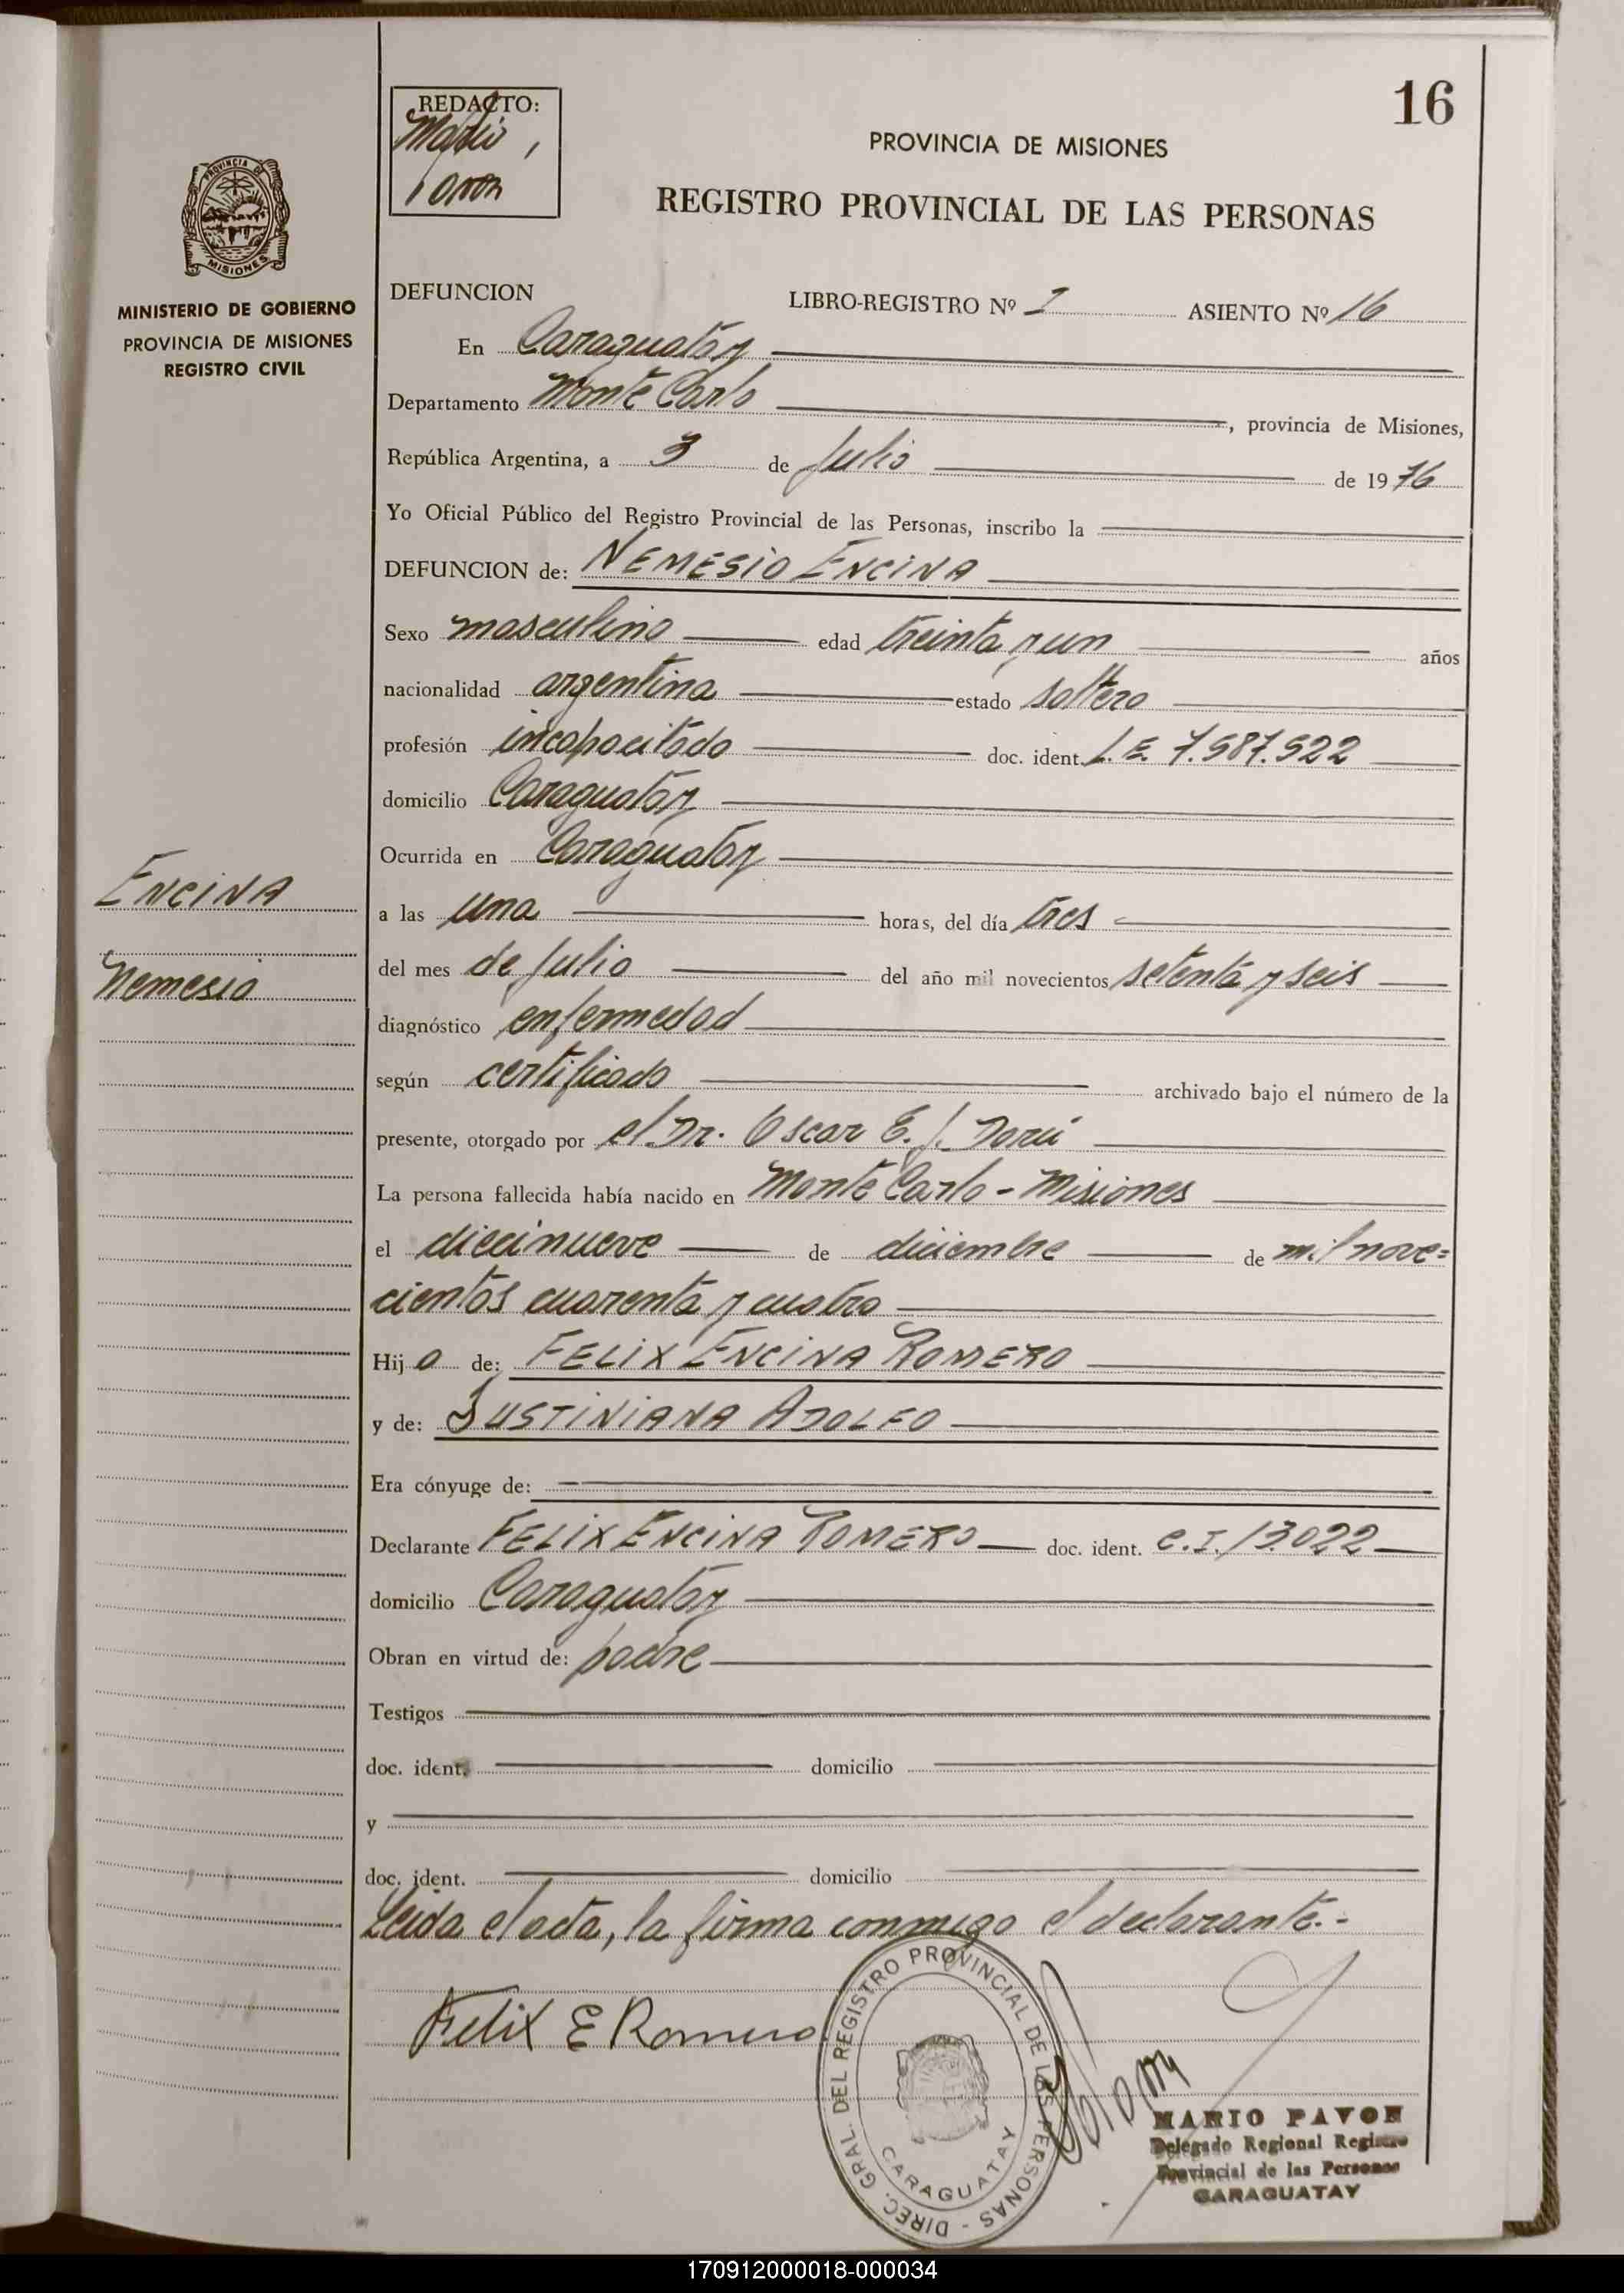 16
REDACTO:
Mario
Pavon
PROVINCIA DE MISIONES
REGISTRO PROVINCIAL DE LAS PERSONAS
PROVINCIA DE MISIONES
MINISTERIO DE GOBIERNO
PROVINCIA DE MISIONES
REGISTRO CIVIL
DEFUNCION LIBRO-REGISTRO Nº I ASIENTO Nº 16
En Caraguatay
Departamento Monte Carlo, provincia de Misiones,
República Argentina, a 3 de Julio de 1976
Yo Oficial Público del Registro Provincial de las Personas, inscribo la
DEFUNCION de: NEMESIO ENCINA
Sexo masculino edad treinta y un años
nacionalidad argentina estado soltero
profesión incapacitado doc. ident. L.E. 7.587.522
domicilio Caraguatay
Ocurrida en Caraguatay
ENCINA
Nemesio
a las una horas, del día tres
del mes de Julio del año mil novecientos setenta y seis
diagnóstico enfermedad
según certificado archivado bajo el número de la
presente, otorgado por el Dr. Oscar E. J.
La persona fallecida había nacido en Monte Carlo - Misiones
el diecinueve de diciembre de mil nove=
cientos cuarenta y cuatro
Hijo de: FELIX ENCINA ROMERO
y de: JUSTINIANA ADOLFO
Era cónyuge de:
Declarante FELIX ENCINA ROMERO doc. ident. C.I. 13.022
domicilio Caraguatay
Obran en virtud de: padre
Testigos
doc. ident. domicilio
y
doc. ident. domicilio
Leida el acta, la firma conmigo el declarante.-
Felix E Romero
DIREC. GRAL. DEL REGISTRO PROVINCIAL DE LAS PERSONAS -
CARAGUATAY
MARIO PAVON
Delegado Regional Registro
Provincial de las Personas
CARAGUATAY
170912000018-000034